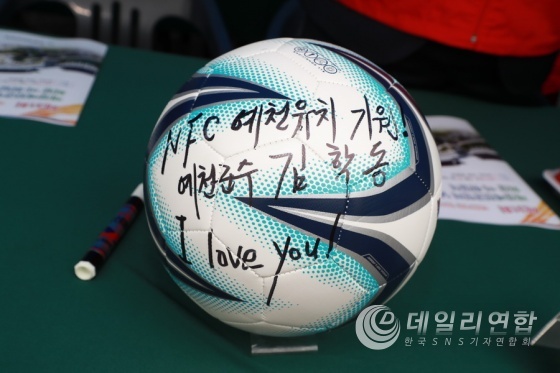 NFC 예천유치 기원!
예천군수 김학동
I love you!
데일리연합
한국SNS기자연합회